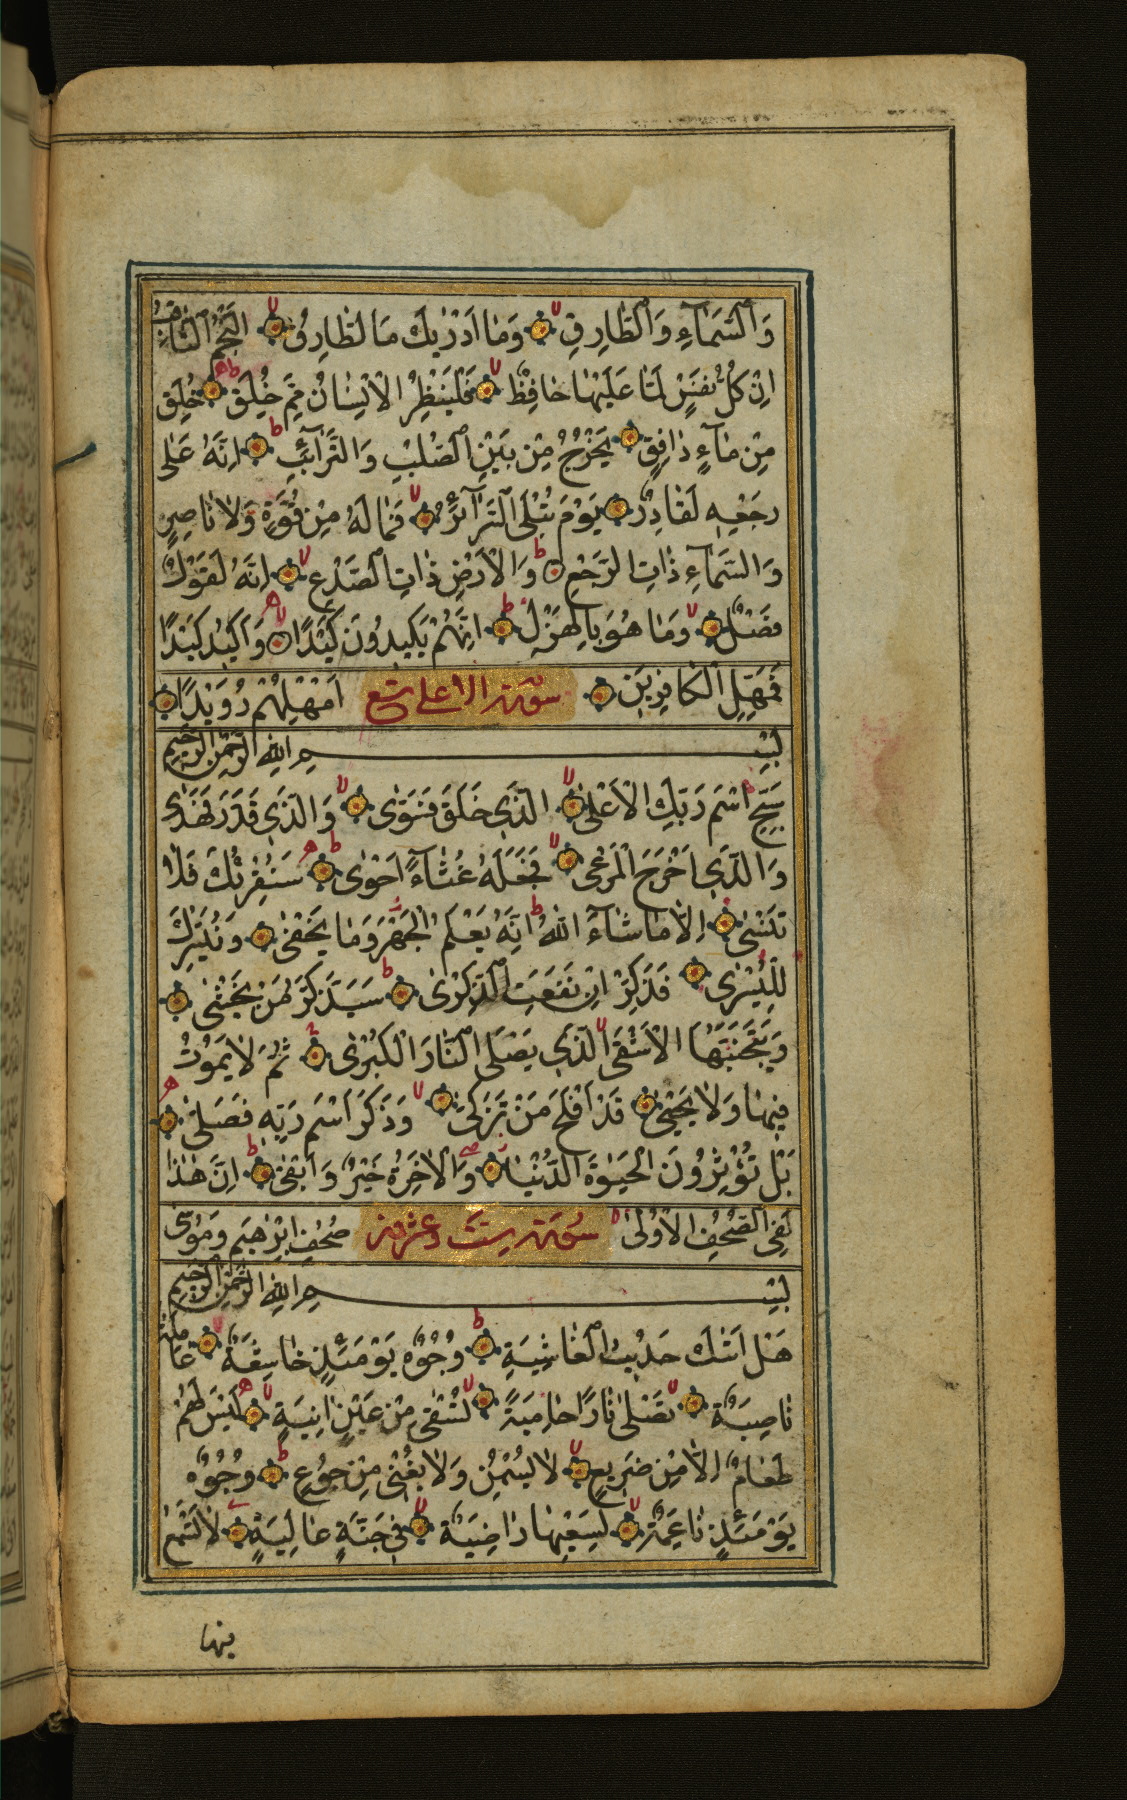 وَالسَّمَآءِ وَالطَّارِقِ وَمٰا اَدْرٰيكَ مَا لطَّارِقُ النَّجْمُ الثَّاقِبُ
اِنْ كُلُّ نَفْسٍ لَمَّا عَلَيْهٰا حٰافِظٌ فَلْيَنْظُرِ الْاِنْسٰانُ مِمَّ خُلِقَ خُلِقَ
مِنْ مٰآءٍ دٰافِقٍ يَخْرُجُ مِنْ بَيْنِ الصُّلْبِ وَالتَّرَآئِبِ اِنَّهُ عَلٰى
رَجْعِهِ لَقٰادِرٌ يَوْمَ تُبْلَى السَّرَآئِرُ فَمٰا لَهُ مِنْ قُوَّةٍ وَلٰا نٰاصِرٍ
وَالسَّمَآءِ ذٰاتِ الرَّجْعِ وَالْاَرْضِ ذٰاتِ الصَّدْعِ اِنَّهُ لَقَوْلٌ
فَصْلٌ وَمٰا هُوَ بِالْهَزْلِ اِنَّهُمْ يَكِيدُونَ كَيْدًا وَاَكِيدُ كَيْدًا
فَمَهِّلِ الْكٰافِرِينَ سورة الاعلى تسع اَمْهِلْهُمْ رُوَيْدًا
بِسْمِ اللهِ الرَّحْمٰنِ الرَّحِيمِ
سَبِّحِ اسْمَ رَبِّكَ الْاَعْلٰى الَّذِي خَلَقَ فَسَوّٰى وَالَّذِي قَدَّرَ فَهَدٰى
وَالَّذِي اَخْرَجَ الْمَرْعٰى فَجَعَلَهُ غُثٰآءً اَحْوٰى سَنُقْرِئُكَ فَلٰا
تَنْسٰى اِلّٰا مٰا شٰآءَ اللهُ اِنَّهُ يَعْلَمُ الْجَهْرَ وَمٰا يَخْفٰى وَنُيَسِّرُكَ
لِلْيُسْرٰى فَذَكِّرْ اِنْ نَفَعَتِ الذِّكْرٰى سَيَذَّكَّرُ مَنْ يَخْشٰى
وَيَتَجَنَّبُهَا الْاَشْقَى الَّذِي يَصْلَى النَّارَ الْكُبْرٰى ثُمَّ لٰا يَمُوتُ
فِيهٰا وَلٰا يَحْيٰى قَدْ اَفْلَحَ مَنْ تَزَكّٰى وَذَكَرَ اسْمَ رَبِّهِ فَصَلّٰى
بَلْ تُؤْثِرُونَ الْحَيٰوةَ الدُّنْيٰا وَالْاٰخِرَةُ خَيْرٌ وَاَبْقٰى اِنَّ هٰذٰا
لَفِى الصُّحُفِ الْاُولٰى سورة ست وعشرون صُحُفِ اِبْرٰهِيمَ وَمُوسٰى
بِسْمِ اللهِ الرَّحْمٰنِ الرَّحِيمِ
هَلْ اَتٰكَ حَدِيثُ الْغٰاشِيَةِ وُجُوهٌ يَوْمَئِذٍ خٰاشِعَةٌ عٰامِلَةٌ
نٰاصِبَةٌ تَصْلٰى نٰارًا حٰامِيَةً تُسْقٰى مِنْ عَيْنٍ اٰنِيَةٍ لَيْسَ لَهُمْ
طَعٰامٌ اِلّٰا مِنْ ضَرِيعٍ لٰا يُسْمِنُ وَلٰا يُغْنِي مِنْ جُوعٍ وُجُوهٌ
يَوْمَئِذٍ نٰاعِمَةٌ لِسَعْيِهٰا رٰاضِيَةٌ فِي جَنَّةٍ عٰالِيَةٍ لٰا تَسْمَعُ
فيها